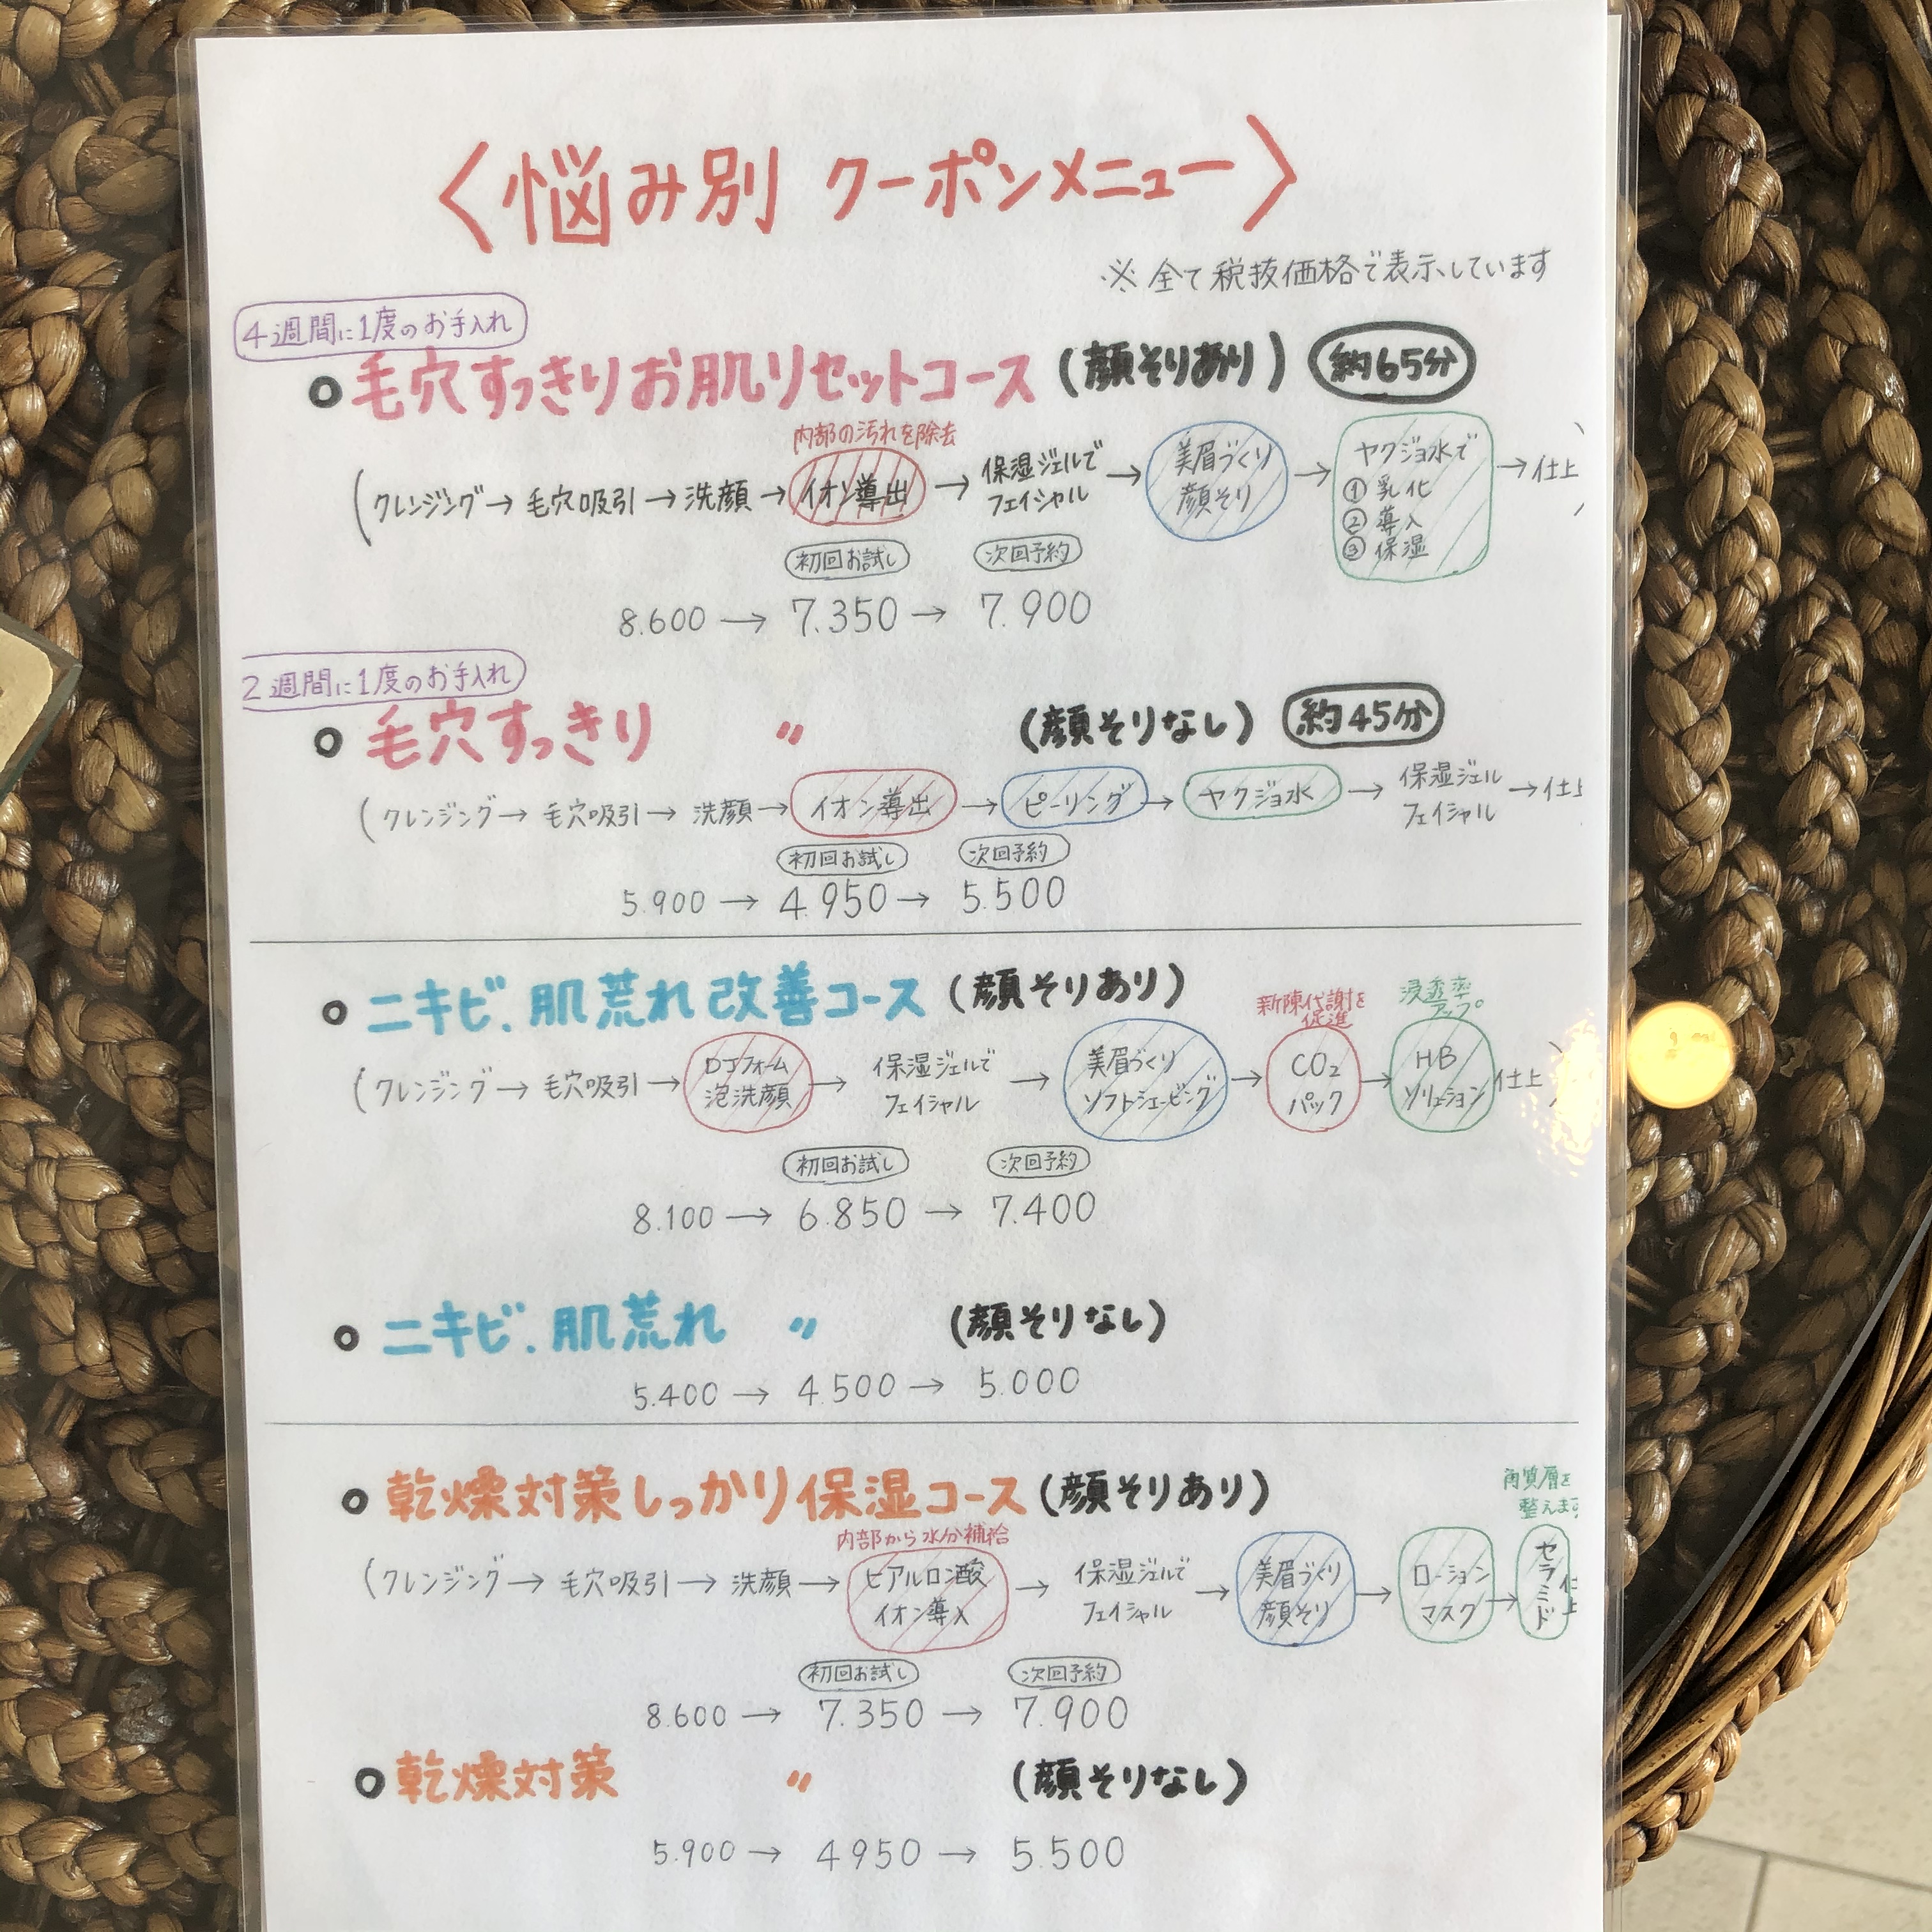 〈悩み別 クーポンメニュー〉
※ 全て税抜価格で表示しています
4週間に1度のお手入れ
○ 毛穴すっきりお肌リセットコース (顔そりあり) 約65分
内部の汚れを除去
(クレンジング→ 毛穴吸引→洗顔→イオン導出→保湿ジェルでフェイシャル→美眉づくり顔そり→ヤクジョ水で①乳化②導入③保湿→仕上)
初回お試し 次回予約
8.600 → 7.350 → 7.900
2週間に1度のお手入れ
○ 毛穴すっきり 〃 (顔そりなし) 約45分
(クレンジング→ 毛穴吸引→ 洗顔→イオン導出→ピーリング→ヤクジョ水→保湿ジェルフェイシャル→仕上
初回お試し 次回予約
5.900 → 4.950 → 5.500
○ ニキビ、肌荒れ改善コース (顔そりあり)
新陳代謝を促進 浸透率アップ
(クレンジング→ 毛穴吸引→DJフォーム泡洗顔→保湿ジェルでフェイシャル→美眉づくりソフトシェービング→CO2パック→HBソリューション仕上)
初回お試し 次回予約
8.100 → 6.850 → 7.400
○ ニキビ、肌荒れ 〃 (顔そりなし)
5.400 → 4.500 → 5.000
○ 乾燥対策しっかり保湿コース (顔そりあり)
内部から水分補給 角質層を整えます
(クレンジング→ 毛穴吸引→ 洗顔→ヒアルロン酸イオン導入→保湿ジェルでフェイシャル→美眉づくり顔そり→ローションマスク→セラミド仕上
初回お試し 次回予約
8.600 → 7.350 → 7.900
○ 乾燥対策 〃 (顔そりなし)
5.900 → 4950 → 5.500